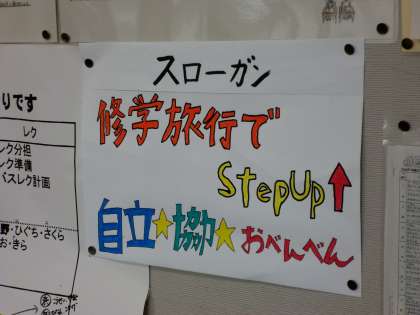 スローガン
修学旅行で
StepUp↑
自立★協力★おべんべん
りです
レク
レク分担
レク準備
バスレク計画
野・ひぐち・さくら
お・きら